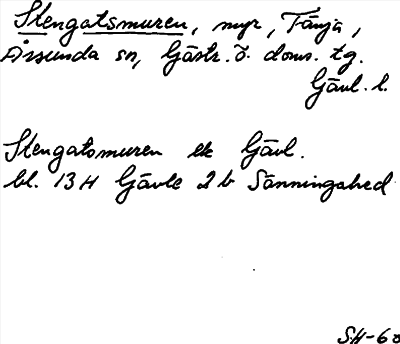 Stengatsmuren, myr, Tånja,
Årsunda sn, Gästr. ö. doms. tg.
Gävl. l.
Stengatsmuren ek Gävl.
bl. 13 H Gävle 2 b Sänningshed
SH-68